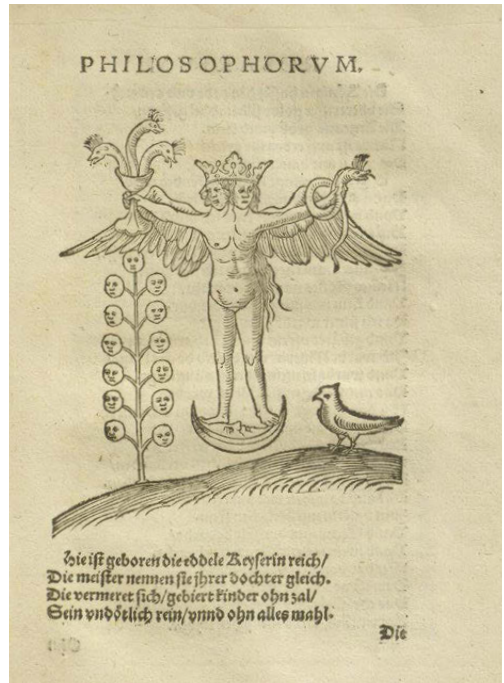 PHILOSOPHORVM.
Hie ist geboren die eddele Keyserin reich/
Die meister nennen sie jhrer dochter gleich.
Die vermeret sich/gebiert kinder ohn zal/
Sein vndötlich rein/vnnd ohn alles mahl.
Die